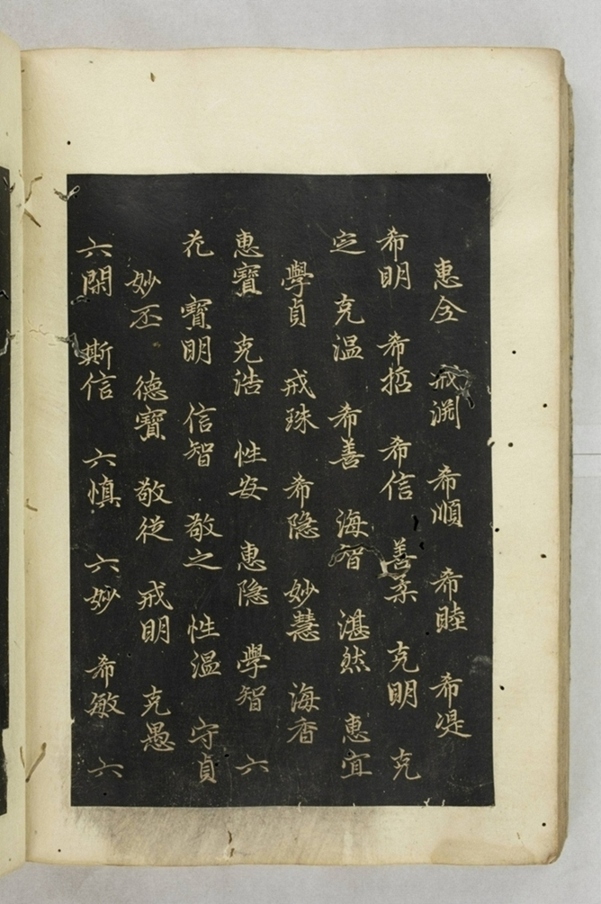 惠全 戒渊 希順 希睦 希湜
希明 希哲 希信 善柔 克明 克
定 克温 希善 海智 湛然 惠宜
學貞 戒珠 希隐 妙慧 海香
惠寶 克浩 性安 惠隐 學智 六
花 寳明 信智 敬之 性温 守貞
妙丕 德寶 敬從 戒明 克愚
六閑 斯信 六慎 六妙 希敏 六